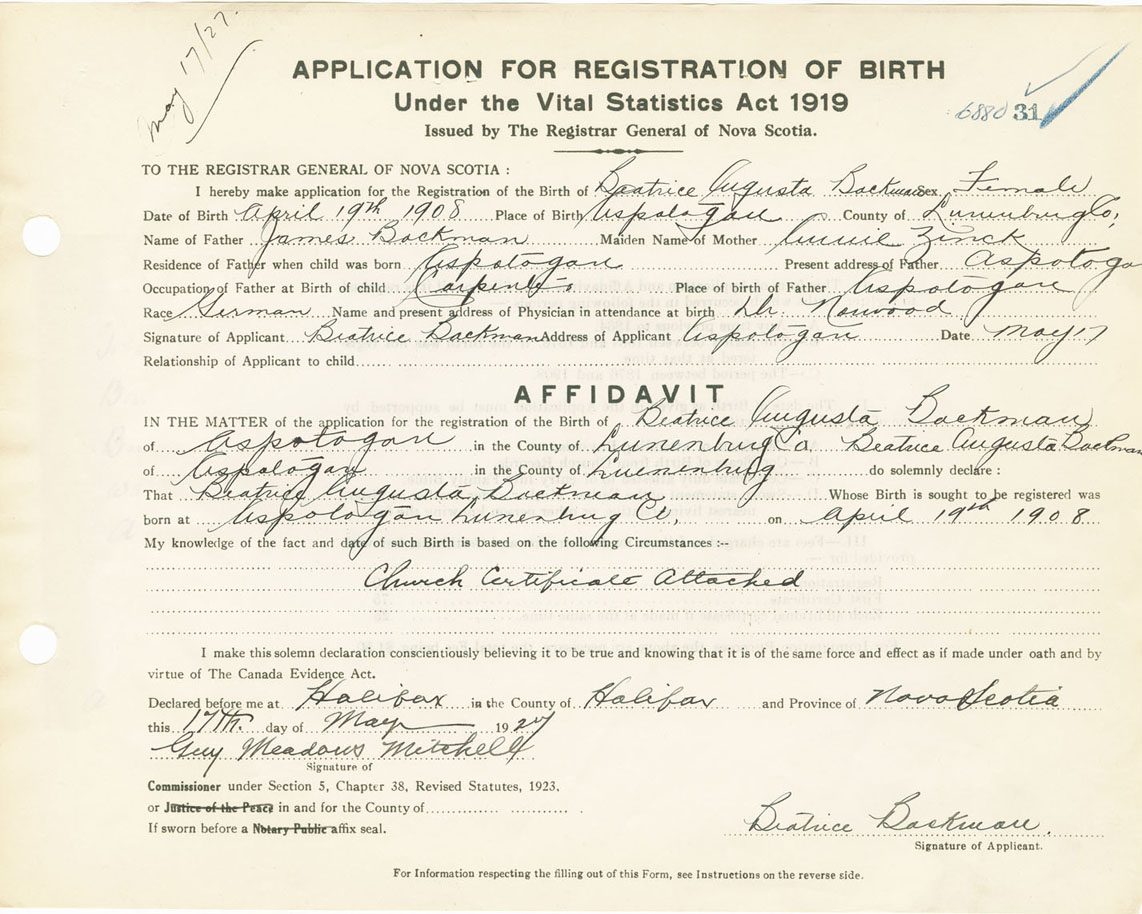 May 17/27.
APPLICATION FOR REGISTRATION OF BIRTH
Under the Vital Statistics Act 1919
Issued by The Registrar General of Nova Scotia.
6880 31
TO THE REGISTRAR GENERAL OF NOVA SCOTIA :
I hereby make application for the Registration of the Birth of Beatrice Augusta Backman Sex Female
Date of Birth April 19th 1908 Place of Birth Aspotogan County of Lunenburg Co,
Name of Father James Backman Maiden Name of Mother Annie Zinck
Residence of Father when child was born Aspotogan Present address of Father Aspotoga
Occupation of Father at Birth of child Carpenter Place of birth of Father Aspotogan
Race German Name and present address of Physician in attendance at birth Dr. Norwood
Signature of Applicant Beatrice Backman Address of Applicant Aspotogan Date May 17
Relationship of Applicant to child
AFFIDAVIT
IN THE MATTER of the application for the registration of the Birth of Beatrice Augusta Backman
of Aspotogan in the County of Lunenburg Co. Beatrice Augusta Backman
of Aspotogan in the County of Luenenburg do solemnly declare :
That Beatrice Augusta Backman Whose Birth is sought to be registered was
born at Aspotogan Lunenburg Co. on April 19th 1908
My knowledge of the fact and date of such Birth is based on the following Circumstances :--
Church Certificate Attached
I make this solemn declaration conscientiously believing it to be true and knowing that it is of the same force and effect as if made under oath and by
virtue of The Canada Evidence Act.
Declared before me at Halifax in the County of Halifax and Province of Nova Scotia
this 17th. day of May 1927
Guy Meadows Mitchell
Signature of
Commissioner under Section 5, Chapter 38, Revised Statutes, 1923,
or Justice of the Peace in and for the County of
If sworn before a Notary Public affix seal.
Beatrice Backman.
Signature of Applicant.
For Information respecting the filling out of this Form, see Instructions on the reverse side.